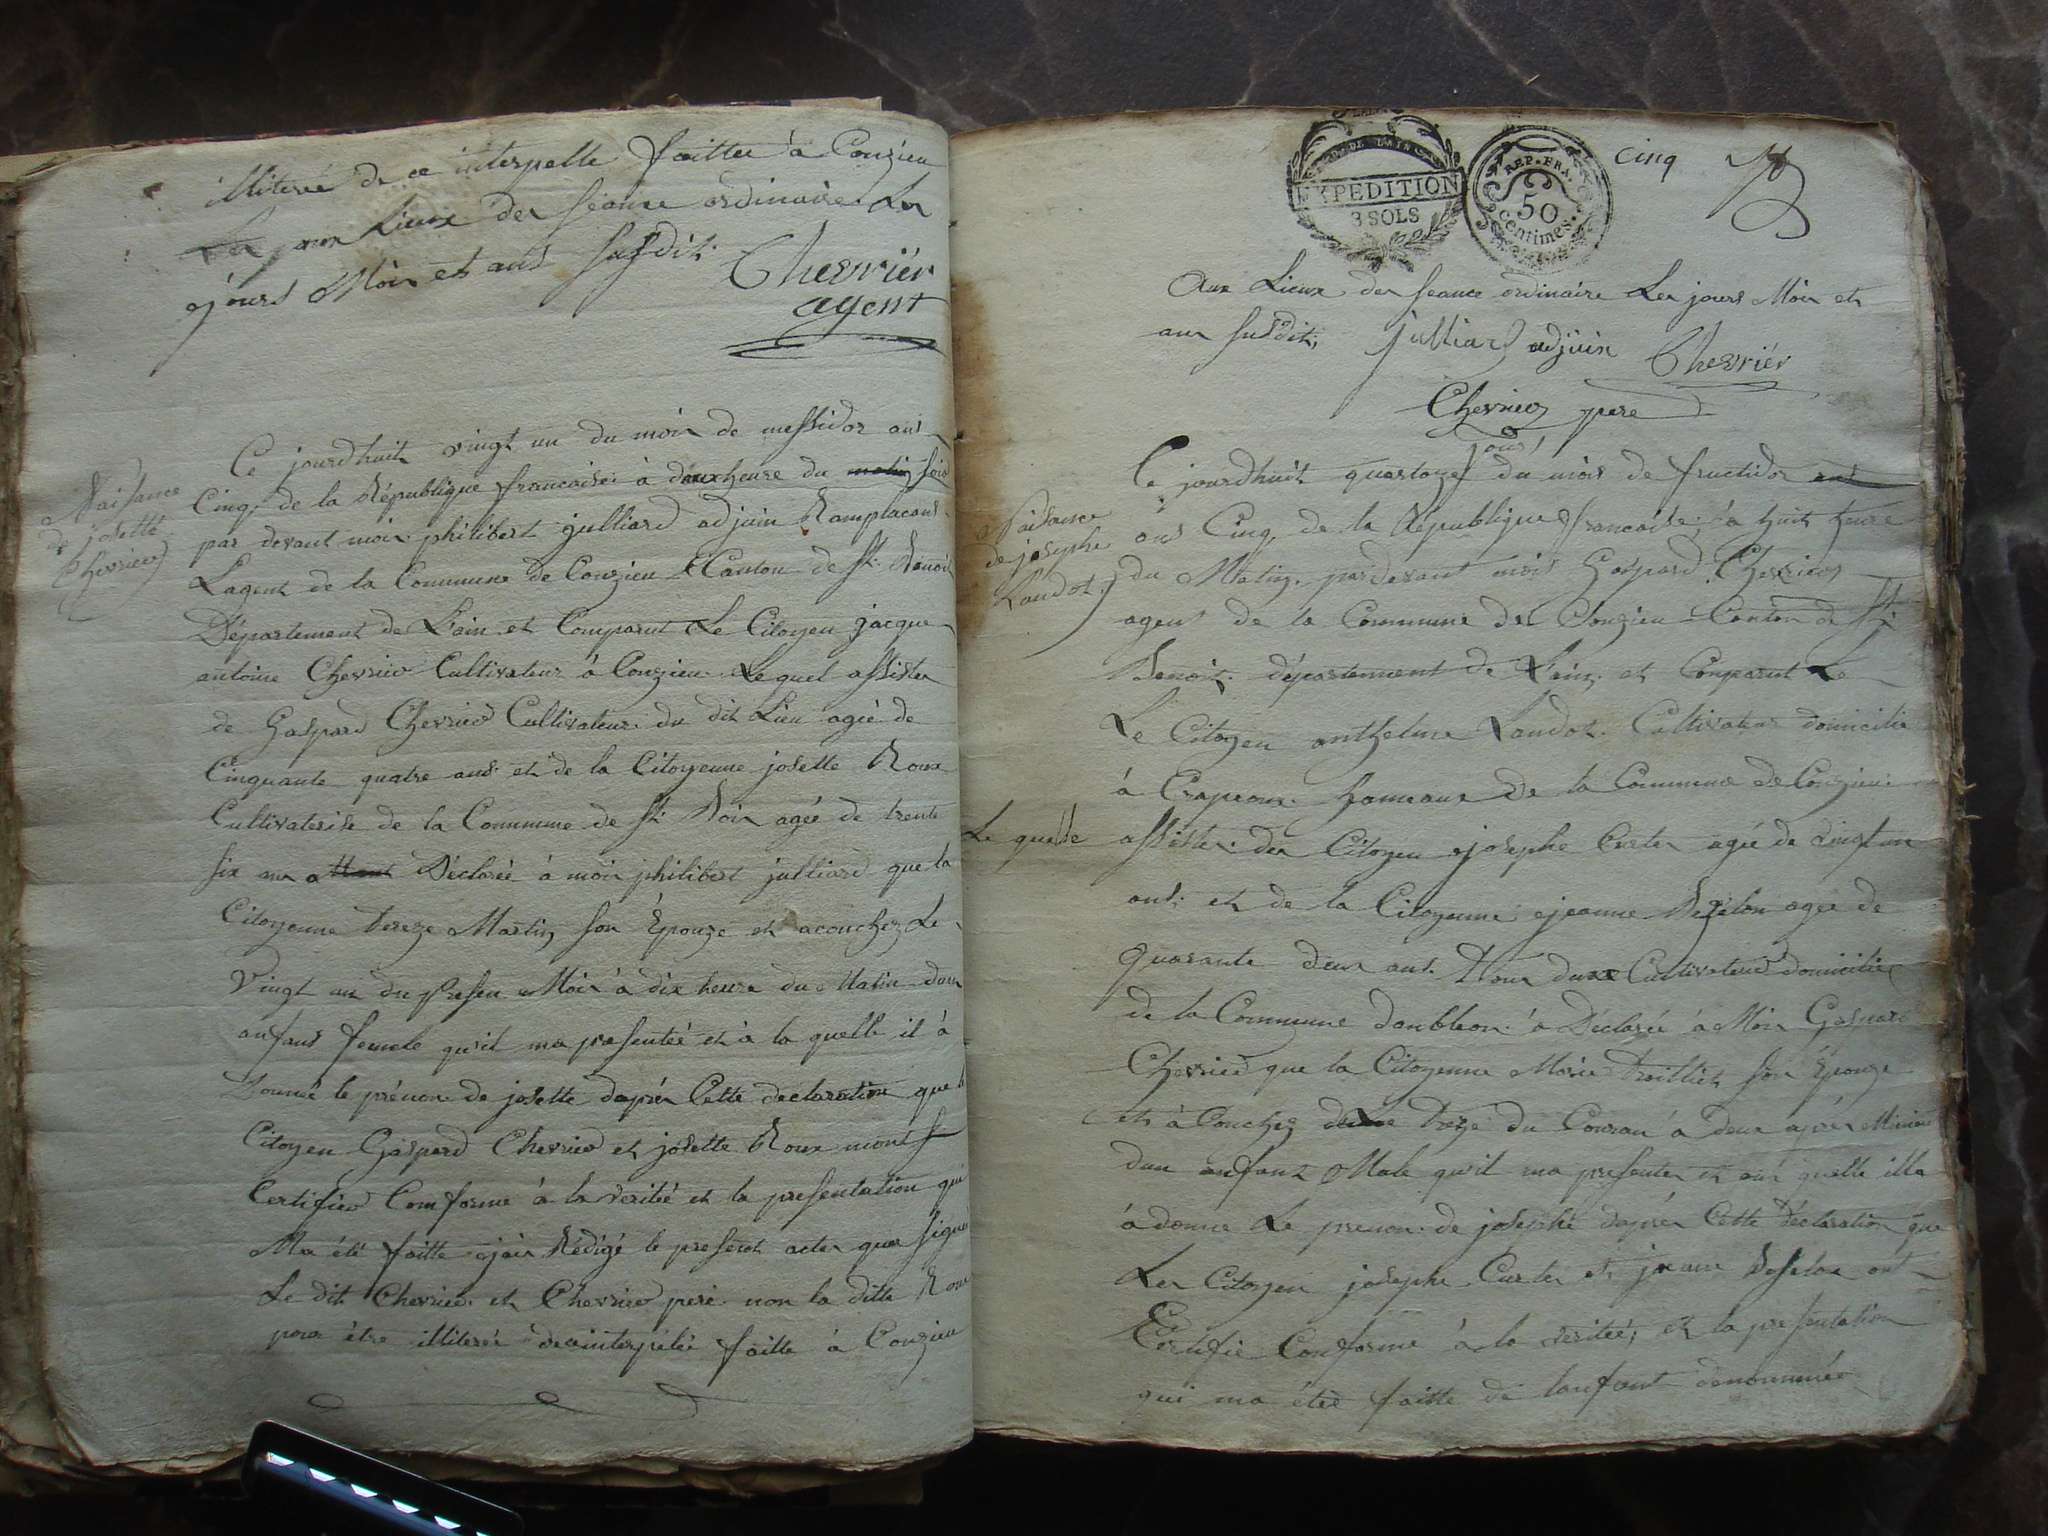 illiterée de ce interpelle faitte à Conzieu
Les aux Lieux des Séance ordinaire Les
jours Mois et ans susdit. Chevriér
agent
Naissance
de josette
Chevrier
Ce jourdhuit vingt un du mois de messidor ans
Cinq de la République francaise à deux heure du matin soir
par devant moi philibert julliard adjoin Ramplacant
Lagent de la Commune de Conzieu Canton de St. Benoit
Département de Lain et Comparut Le Citoyen jacque
antoine Chevrier Cultivateur à Conzieu Lequel assister
de Gaspard Chevrier Cultivateur du dit Lieu agée de
Cinquante quatre ans et de la Citoyenne josette Roux
Cultivaterise de la Commune de St. Boin agée de trente
six ans Déclarée à moi philibert julliard que la
Citoyenne tereze Martin son Épouze et acouchez Le
Vingt un du Presen Mois à dix heure du Matin dun
anfans femele quil ma presentée et à la quelle il à
Donné le prénon de josette daprés Cette declaration que le
Citoyen Gaspard Chevrier et josette Roux mont
Certifier Comforme à la veritée et la presentation qui
Ma été faitte jai Rédigé le present acter quon signé
Le dit Chevrier et Chevrier pere non la ditte Roux
pour être illiterée de ce interpélé faitte à Conzieu
EXPEDITION
3 SOLS
REP. FRA.
50
Centimes
cinq
Aux Lieux des Seance ordinaire Les jours Mois et
ans susdit, julliard adjoin Chevriér
Chevrier pere
Naisance
de josephe
Landot
jours
Ce jourdhuit quartoze du mois de fructidor ans
ans Cinq de la République francaise, à huit heure
du Matin, pardevant moi Gaspard Chevrier
agent de la Commune de Conzieu Canton de St
Benoit département de Lain, et Comparut Le
Le Citoyen anthelme Landot Cultivateur domicilié
à Crapeoux hameaux de la Commune de Conzieu
Le quelle assister des Citoyen josephe Curtet agée de Cinqt un
ans et de la Citoyenne jeanne agée de
quarante deux ans Tous deux Cultivateur domicilié
de la Commune donbleon à Déclarée à Moi Gaspard
Chevrier que la Citoyenne Marie son Épouze
et à Couchez Le treze du Couran à deux aprés Minuit
dun anfant Male quil ma presenter et au quelle illa
à donné Le prenon de josephe daprés Cette déclaration que
Les Citoyen josephe Curtet et jeanne ont
Certifié Conforme à la veritée, et la presentation
qui ma étée faitte de lanfant dénommée